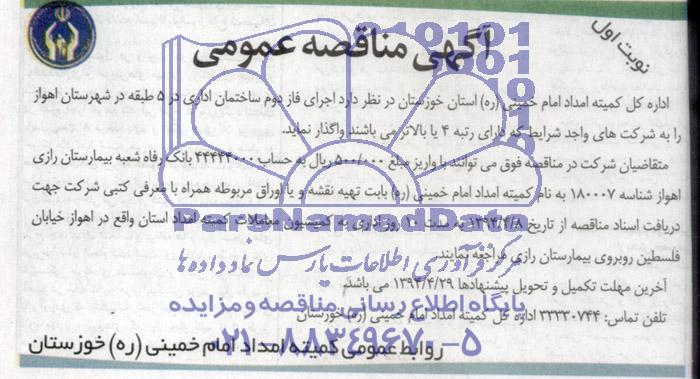 نوبت اول
آگهی مناقصه عمومی
اداره کل کمیته امداد امام خمینی (ره) استان خوزستان در نظر دارد اجرای فاز دوم ساختمان اداری در ۵ طبقه در شهرستان اهواز
را به شرکت های واجد شرایط که دارای رتبه ۴ یا بالاتر می باشند واگذار نماید.
متقاضیان شرکت در مناقصه فوق می توانند با واریز مبلغ ۵۰۰/۰۰۰ ریال به حساب ۴۴۴۴۴۰۰۰ بانک رفاه شعبه بیمارستان رازی
اهواز شناسه ۱۸۰۰۰۷ به نام کمیته امداد امام خمینی (ره) بابت تهیه نقشه و یا اوراق مربوطه همراه با معرفی کتبی شرکت جهت
دریافت اسناد مناقصه از تاریخ ۱۳۹۴/۴/۸ به مدت ۱۰ روز اداری به کمیسیون معاملات کمیته امداد استان واقع در اهواز خیابان
فلسطین روبروی بیمارستان رازی مراجعه نمایند.
آخرین مهلت تکمیل و تحویل پیشنهادها ۱۳۹۴/۴/۲۹ می باشد.
تلفن تماس: ۳۳۳۳۰۷۴۴ اداره کل کمیته امداد امام خمینی (ره) خوزستان
روابط عمومی کمیته امداد امام خمینی (ره) خوزستان
ParsNamadData
مرکز فرآوری اطلاعات پارس نماد داده ها
پایگاه اطلاع رسانی مناقصه و مزایده
۰۲۱-۸۸۳۴۹۶۷۰-۵